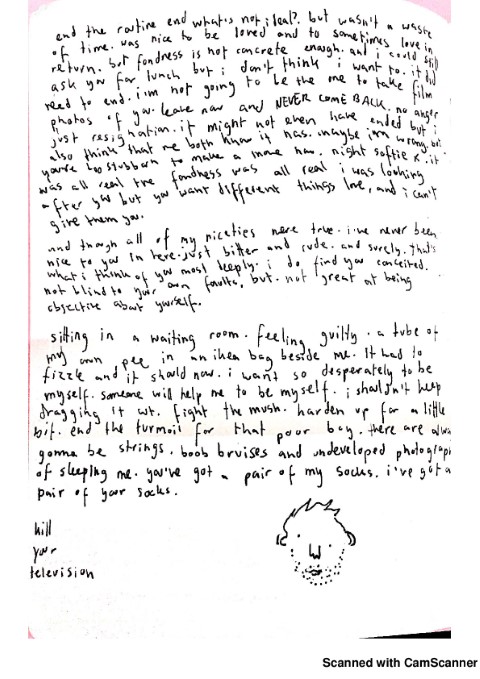 end the routine end what's not ideal?. but wasn't a waste
of time. was nice to be loved and to sometimes love in
return. but fondness is not concrete enough. and i could still
ask you for lunch but i don't think i want to. it did
need to end. i'm not going to be the one to take film
photos of you. leave now and NEVER COME BACK. no anger
just resignation. it might not even have ended but i
also think that we both know it has. maybe i'm wrong. but
you're too stubborn to make a move now. night softie x. it
was all real the fondness was all real i was looking
after you but you want different things love, and i can't
give them you.
and though all of my niceties were true. i've never been
nice to you in here. just bitter and rude. and surely. that's
what i think of you most deeply. i do find you conceited.
not blind to your own faults, but. not great at being
objective about yourself.
sitting in a waiting room. feeling guilty. a tube of
my own pee in an ikea bag beside me. It had to
fizzle and it should now. i want so desperately to be
myself. someone will help me to be myself. i shouldn't keep
dragging it out. fight the mush. harden up for a little
bit. end the turmoil for that poor boy. there are
gonna be strings. boob bruises and undeveloped
of sleeping me. you've got a pair of my socks. i've got a
pair of your socks.
kill
your
television
Scanned with CamScanner